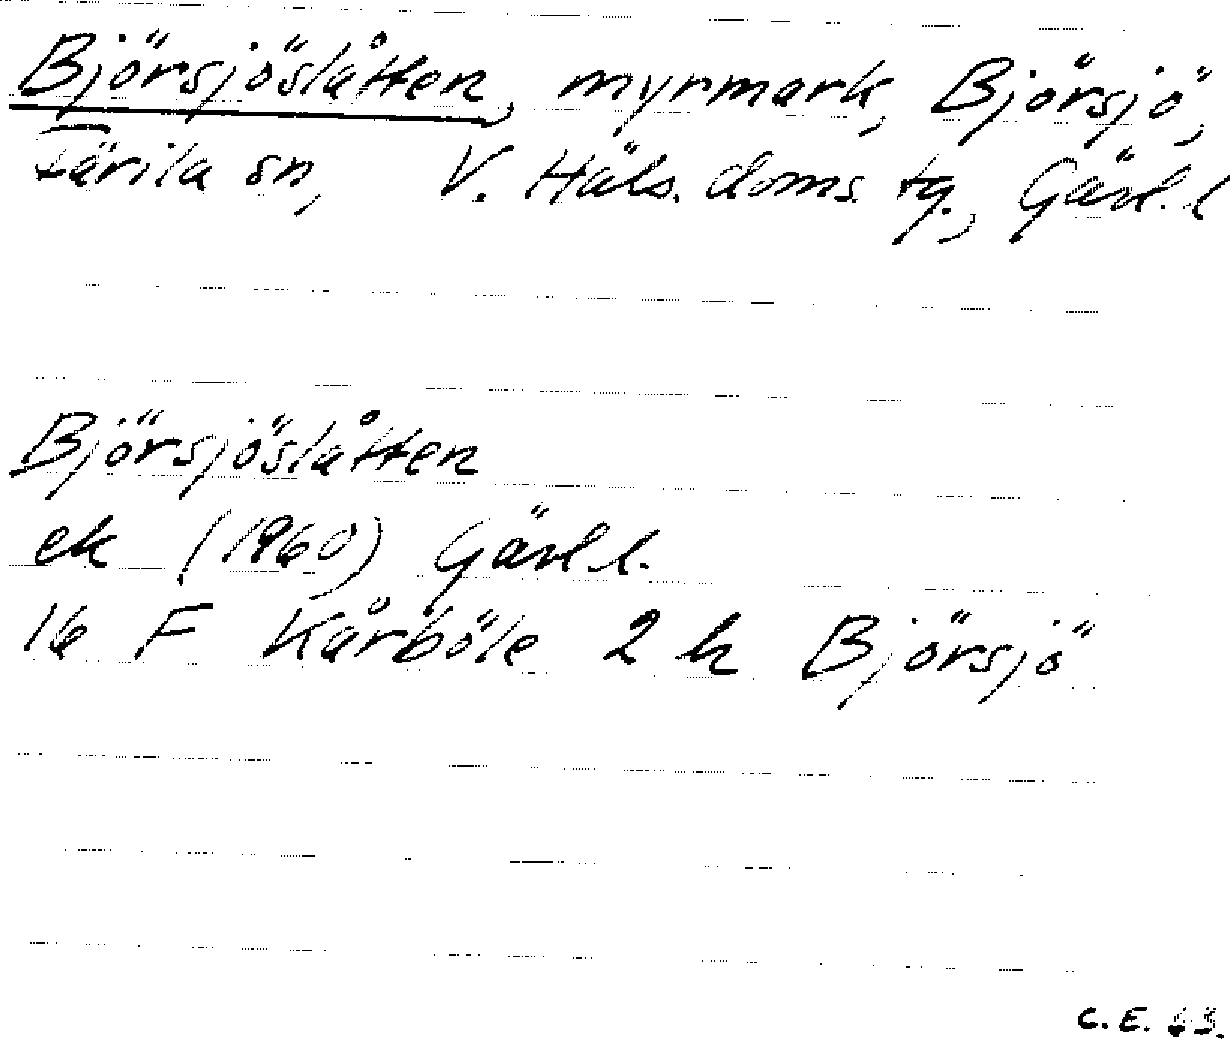 Björsjöslåtten, myrmark, Björsjö,
Färila sn, V. Häls. doms. tg., Gävl. l
Björsjöslåtten
ek (1960) Gävl l.
16 F Kårböle 2 h Björsjö
C. E. 63.